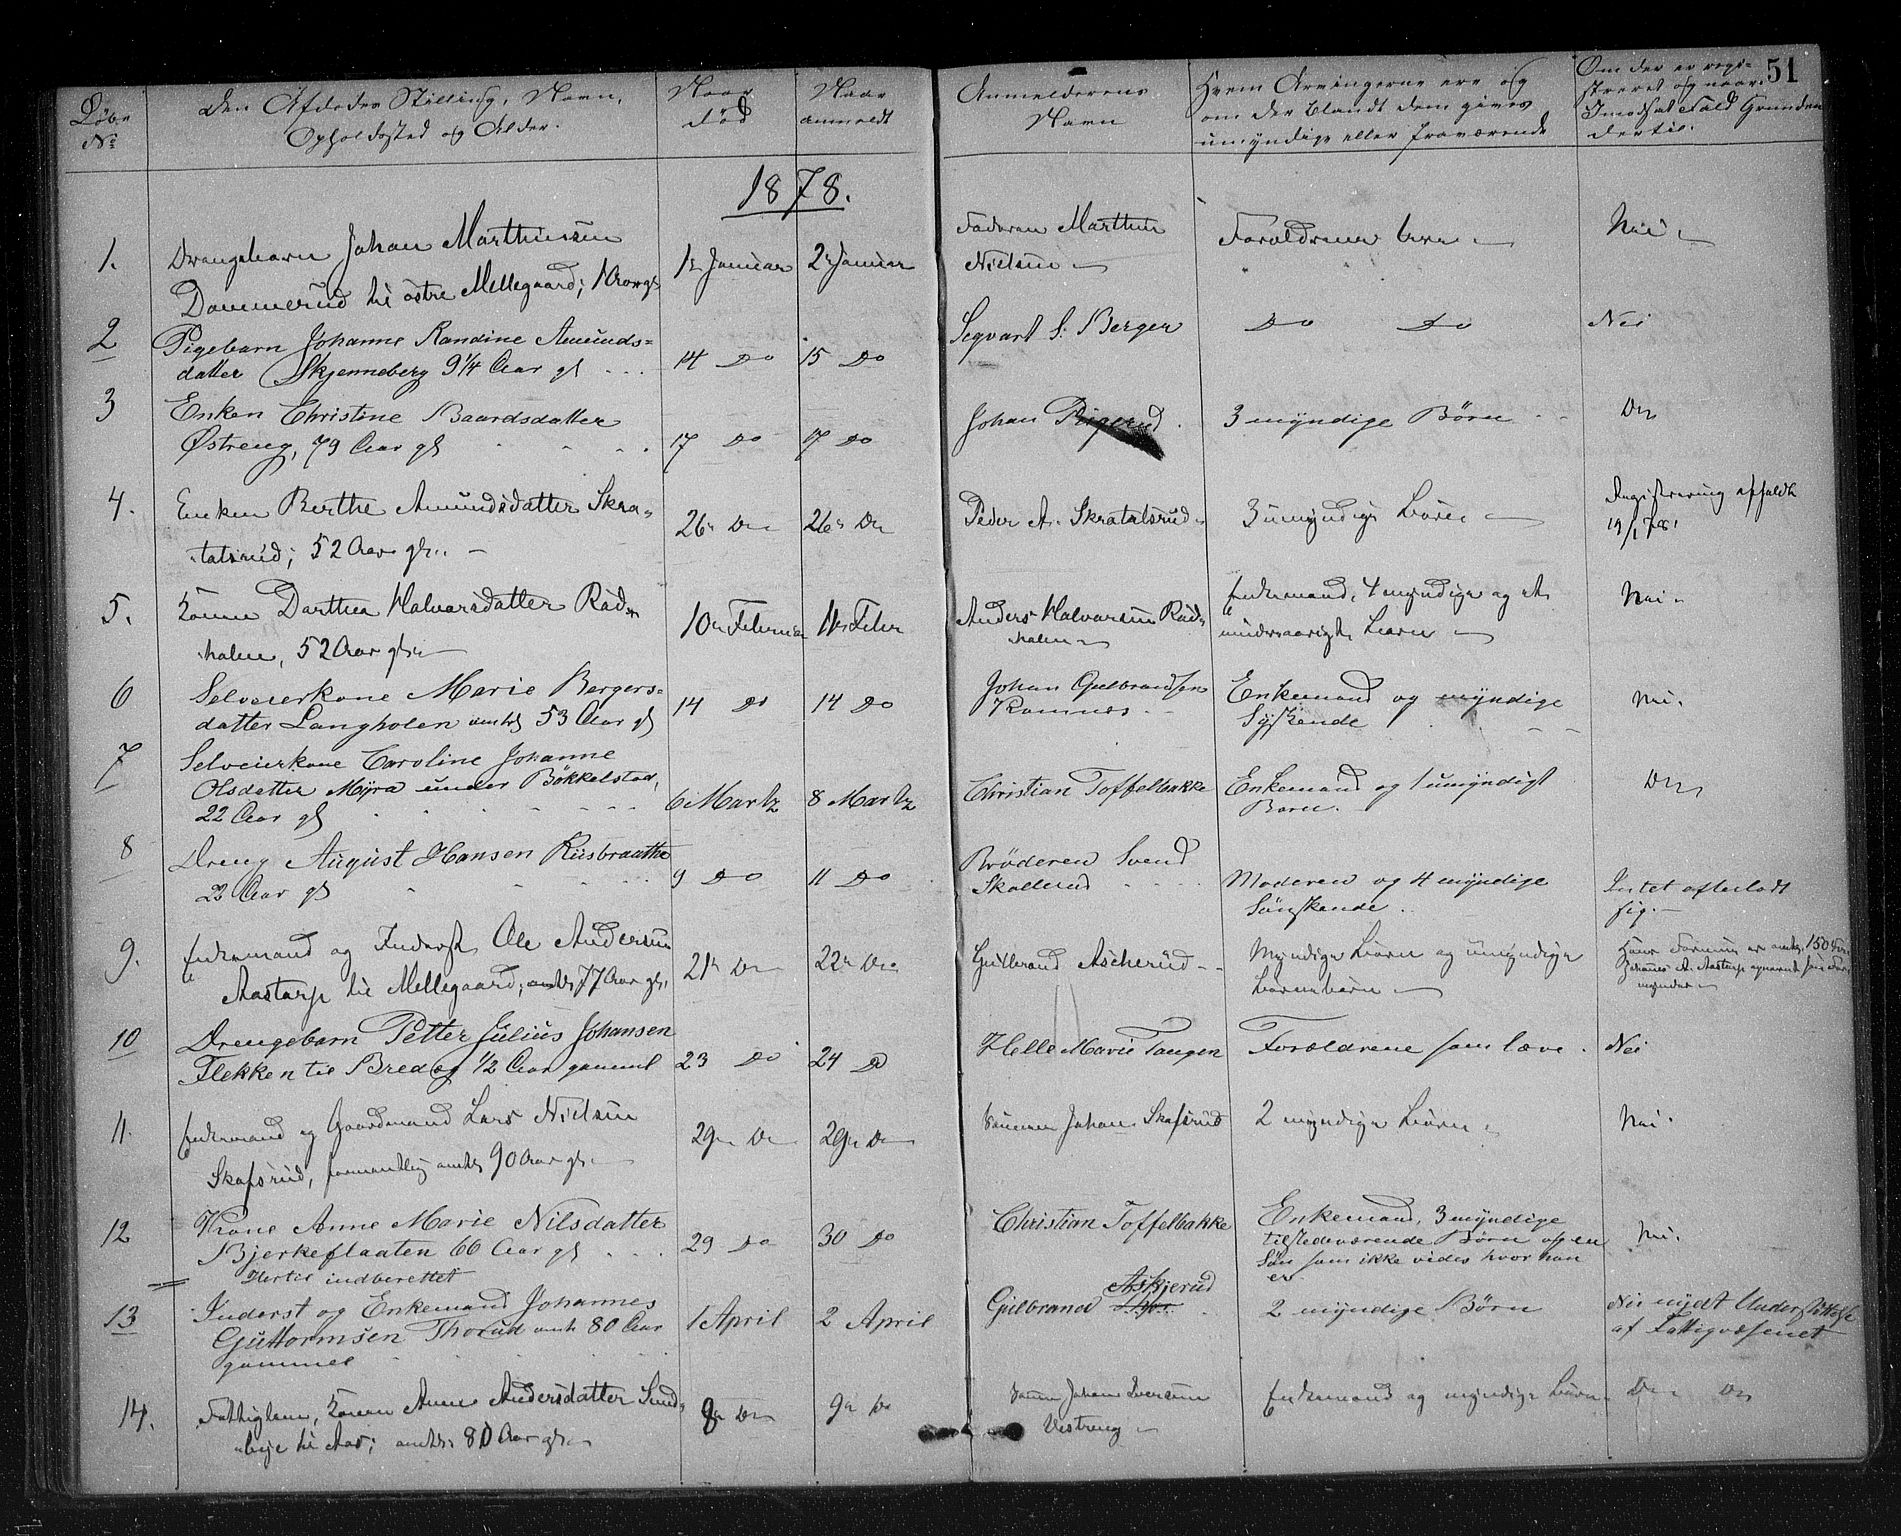 51
Løbe No
Den Afdødes Stilling, Navn, Opholdssted og Alder.
Naar død
Naar anmeldt
Anmelderens Navn
Hvem Arvingerne ere og om der blandt dem gives umyndige eller fraværende
Om der er registreret og naar. I modsat Fald Grunden dertil.
1878.
1. Drengebarn Johan Marthinsen
Dammerud til østre Mellegaard; 1 Aar gl
1 Januar
2 Januar
Faderen Marthin
Nielsen
Forældrene leve
Nei
2 Pigebarn Johanne Randine Amunds=
datter Skjenneberg 9 1/4 Aar gl
14 Do
15 Do
Segvart S. Berger
Do Do
Nei
3 Enken Christine Baardsdatter
Østreng, 79 Aar gl
17 Do
17 Do
Johan
3 myndige Børn
Do
4. Enken Berthe Amundsdatter Skra=
tatsrud; 52 Aar gl.
26 Do
26 Do
Peder A. Skratatsrud
3 umyndige Børn
Registrering afholdt
19/1 78
5. Konen Darthea Halvorsdatter Rød=
holen, 52 Aar gl.
10 Februar
11 Febr
Anders Halvorsen Rød=
holen
Enkemand, 4 myndige og et
mindreaarigt Barn
Nei
6 Selveierkone Marie Bergers=
datter Langholen omtr 53 Aar gl
14 Do
14 Do
Johan Gulbrandsen
Romnes
Enkemand og myndige
Søskende
Nei.
7 Selveierkone Caroline Johanne
Olsdatter Myra under Bøkkelstad,
22 Aar gl
6 Martz
8 Martz
Christian Toffelbakke
Enkemand og 1 umyndigt
Barn.
Do
8 Dreng August Hansen Riisbraathe
22 Aar gl
9 Do
11 Do
Brøderen Svend
Skallerud
Moderen og 4 myndige
Sønskende.
Intet efterladt
sig.
9. Enkemand og Inderst Ole Andersen
Aastorp til Mellegaard, omtr 77 Aar gl.
21 Do
22 Do
Gulbrand Ascherud
Myndige Børn og umyndige
Børnebørn
Hans Formue er omtr. 150
Johannes A. Aastorp opnævnt som For=
mynder
10 Drengebarn Petter Julius Johansen
Flekken til Bredeg 1/2 Aar gammel
23 Do
24 Do
Helle Marie Tangen
Forældrene som læve.
Nei
11. Enkemand og Gaardmand Lars Nielsen
Skafsrud, formentlig omtr 90 Aar gl.
29 Do
29 Do
Sønnen Johan Skafsrud
2 myndige Børn
Nei
12 Kone Anne Marie Nilsdatter
Bjerkeflaaten 66 Aar gl
29 Do
30 Do
Christian Toffelbakke
Enkemand, 3 myndige
tilstedeværende Børn og en
Søn som ikke vides hvor han
er
Nei.
Hertil indberettet
13 Inderst og Enkemand Johannes
Guttormsen Thorud omtr 80 Aar
gammel
1 April
2 April
Gulbrand Askjerud
2 myndige Børn
Nei nydt Understøttelse
af Fattigvæsenet
14. Fattiglem, Konen Anne Andersdatter Sund=
til Aas; omtr 80 Aar gl.
8 Do
9 Do
Johan Iversen
Vestreng
Enkemand og myndige Børn
Do Do